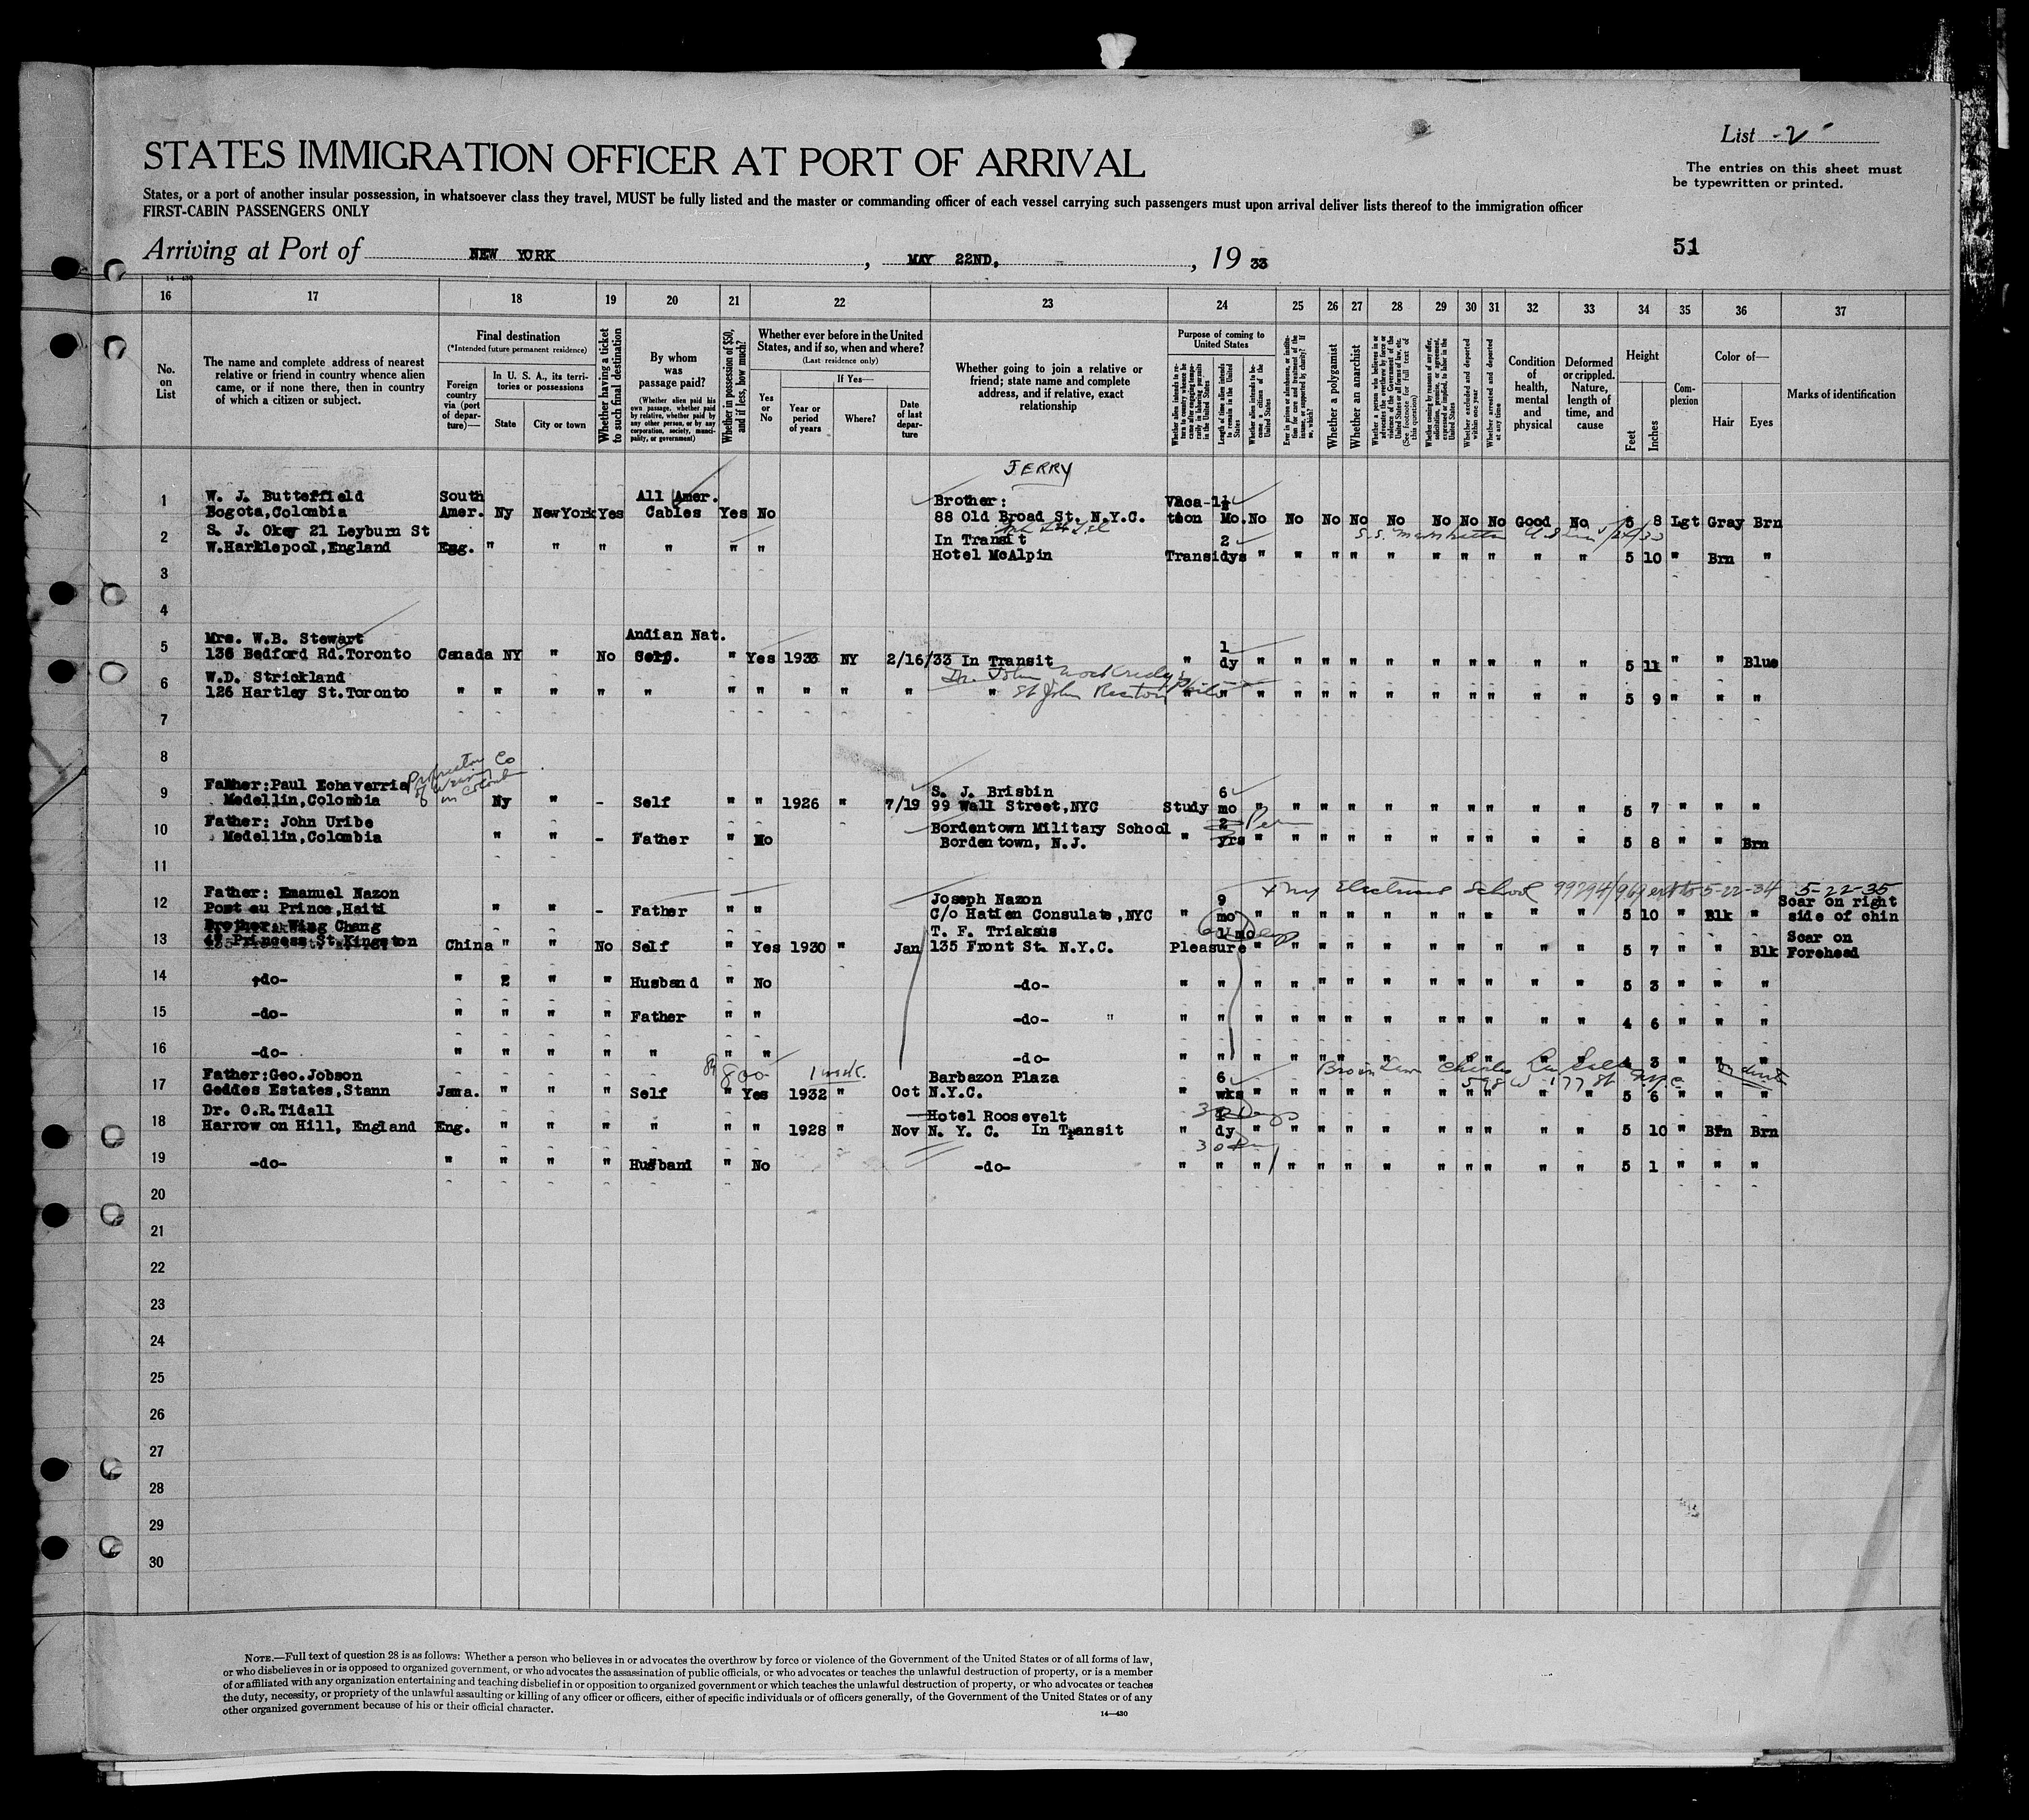 List -2-
STATES IMMIGRATION OFFICER AT PORT OF ARRIVAL
The entries on this sheet must
be typewritten or printed.
States, or a port of another insular possession, in whatsoever class they travel, MUST be fully listed and the master or commanding officer of each vessel carrying such passengers must upon arrival deliver lists thereof to the immigration officer
FIRST-CABIN PASSENGERS ONLY
Arriving at Port of NEW YORK, MAY 22ND, 1933
51
14—430
16 17 18 19 20 21 22 23 24 25 26 27 28 29 30 31 32 33 34 35 36 37
No. on List
The name and complete address of nearest relative or friend in country whence alien came, or if none there, then in country of which a citizen or subject.
Final destination
(*Intended future permanent residence)
Foreign country via (port of departure)—
In U. S. A., its territories or possessions
State
City or town
Whether having a ticket to such final destination
By whom was passage paid?
(Whether alien paid his own passage, whether paid by relative, whether paid by any other person, or by any corporation, society, municipality, or government)
Whether in possession of $50, and if less, how much?
Whether ever before in the United States, and if so, when and where?
(Last residence only)
Yes or No
If Yes—
Year or period of years
Where?
Date of last departure
Whether going to join a relative or friend; state name and complete address, and if relative, exact relationship
Purpose of coming to United States
Whether alien intends to return to country whence he came after engaging temporarily in laboring pursuits in the United States
Length of time alien intends to remain in the United States
Whether alien intends to become a citizen of the United States
Ever in prison or almshouse, or institution for care and treatment of the insane, or supported by charity? If so, which?
Whether a polygamist
Whether an anarchist
Whether a person who believes in or advocates the overthrow by force or violence of the Government of the United States or all forms of law, etc. (See footnote for full text of this question)
Whether coming by reasons of any offer, solicitation, promise, or agreement, expressed or implied, to labor in the United States
Whether excluded and deported within one year
Whether arrested and deported at any time
Condition of health, mental and physical
Deformed or crippled. Nature, length of time, and cause
Height
Feet
Inches
Complexion
Color of—
Hair
Eyes
Marks of identification
JERRY
1 W. J. Butterfield South All Amer. Brother: Vaca-1½
Bogota,Colombia Amer. Ny NewYork Yes Cables Yes No 88 Old Broad St. N.Y.C. tion Mo. No No No No No No No No Good No 5 8 Lgt Gray Brn
2 S. J. Okey 21 Leyburn St In Transit 2
W.Hartlepool,England Eng. " " " " " " Hotel McAlpin Transidys " " " " " " " " " " 5 10 " Brn "
S.S. Manhattan
3
4
5 Mrs. W.B. Stewart Andian Nat. 1
136 Bedford Rd.Toronto Canada NY " No Self. " Yes 1933 NY 2/16/33 In Transit " dy " " " " " " " " " " 5 11 " " Blue
6 W.D. Strickland
126 Hartley St.Toronto " " " " " " " " " " " " " " " " " " " " " " " " 5 9 " " "
7
8
Proprietor
in Colombia
9 Father:Paul Echaverria S. J. Brisbin 6
Medellin,Colombia Ny " - Self " " 1926 " 7/19 99 Wall Street,NYC Study mo " " " " " " " " " " 5 7 " " "
10 Father: John Uribe Bordentown Military School 2
Medellin,Colombia " " - Father " No Bordentown, N.J. " yrs " " " " " " " " " " 5 8 " " Brn
11
School 99294/969 ext to 5-22-34 5-22-35
12 Father: Emanuel Nazon Joseph Nazon 9 Scar on right
Port au Prince,Haiti " " - Father " " C/o Hatien Consulate,NYC " mo " " " " " " " " " " 5 10 " Blk " side of chin
13 Brother: Wing Chang T. F. Triaksus 1 mo Scar on
47 Princess St.Kingston China " " No Self " Yes 1930 " Jan 135 Front St. N.Y.C. Pleasure " " " " " " " " " " 5 7 " " Blk Forehead
14 -do- " 2 " " Husband " No -do- " " " " " " " " " " " " 5 3 " " "
15 -do- " " " " Father " " -do- " " " " " " " " " " " " 4 6 " " "
16 -do- " " " " " " " -do- " " " " " " " " " " " " 4 3 " " "
800 1 week.
17 Father:Geo.Jobson Barbazon Plaza 6
Geddes Estates,Stann Jama. " " " Self " Yes 1932 " Oct N.Y.C. " wks " " " " " " " " " " 5 6 " " "
598 W 177 St
18 Dr. O.R.Tidall Hotel Roosevelt 30 Days
Harrow on Hill, England Eng. " " " " " " 1928 " Nov N. Y. C. In Transit " dy " " " " " " " " " " 5 10 " Brn Brn
19 -do- " " " " Husband " No -do- " " " " " " " " " " " " 5 1 " " "
20
21
22
23
24
25
26
27
28
29
30
NOTE.—Full text of question 28 is as follows: Whether a person who believes in or advocates the overthrow by force or violence of the Government of the United States or of all forms of law,
or who disbelieves in or is opposed to organized government, or who advocates the assassination of public officials, or who advocates or teaches the unlawful destruction of property, or is a member
of or affiliated with any organization entertaining and teaching disbelief in or opposition to organized government or which teaches the unlawful destruction of property, or who advocates or teaches
the duty, necessity, or propriety of the unlawful assaulting or killing of any officer or officers, either of specific individuals or of officers generally, of the Government of the United States or of any
other organized government because of his or their official character.
14—430